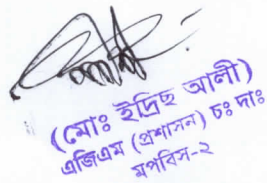 (মোঃ ইদ্রিছ আলী)
এজিএম (প্রশাসন) চঃ দাঃ
মপবিস-২